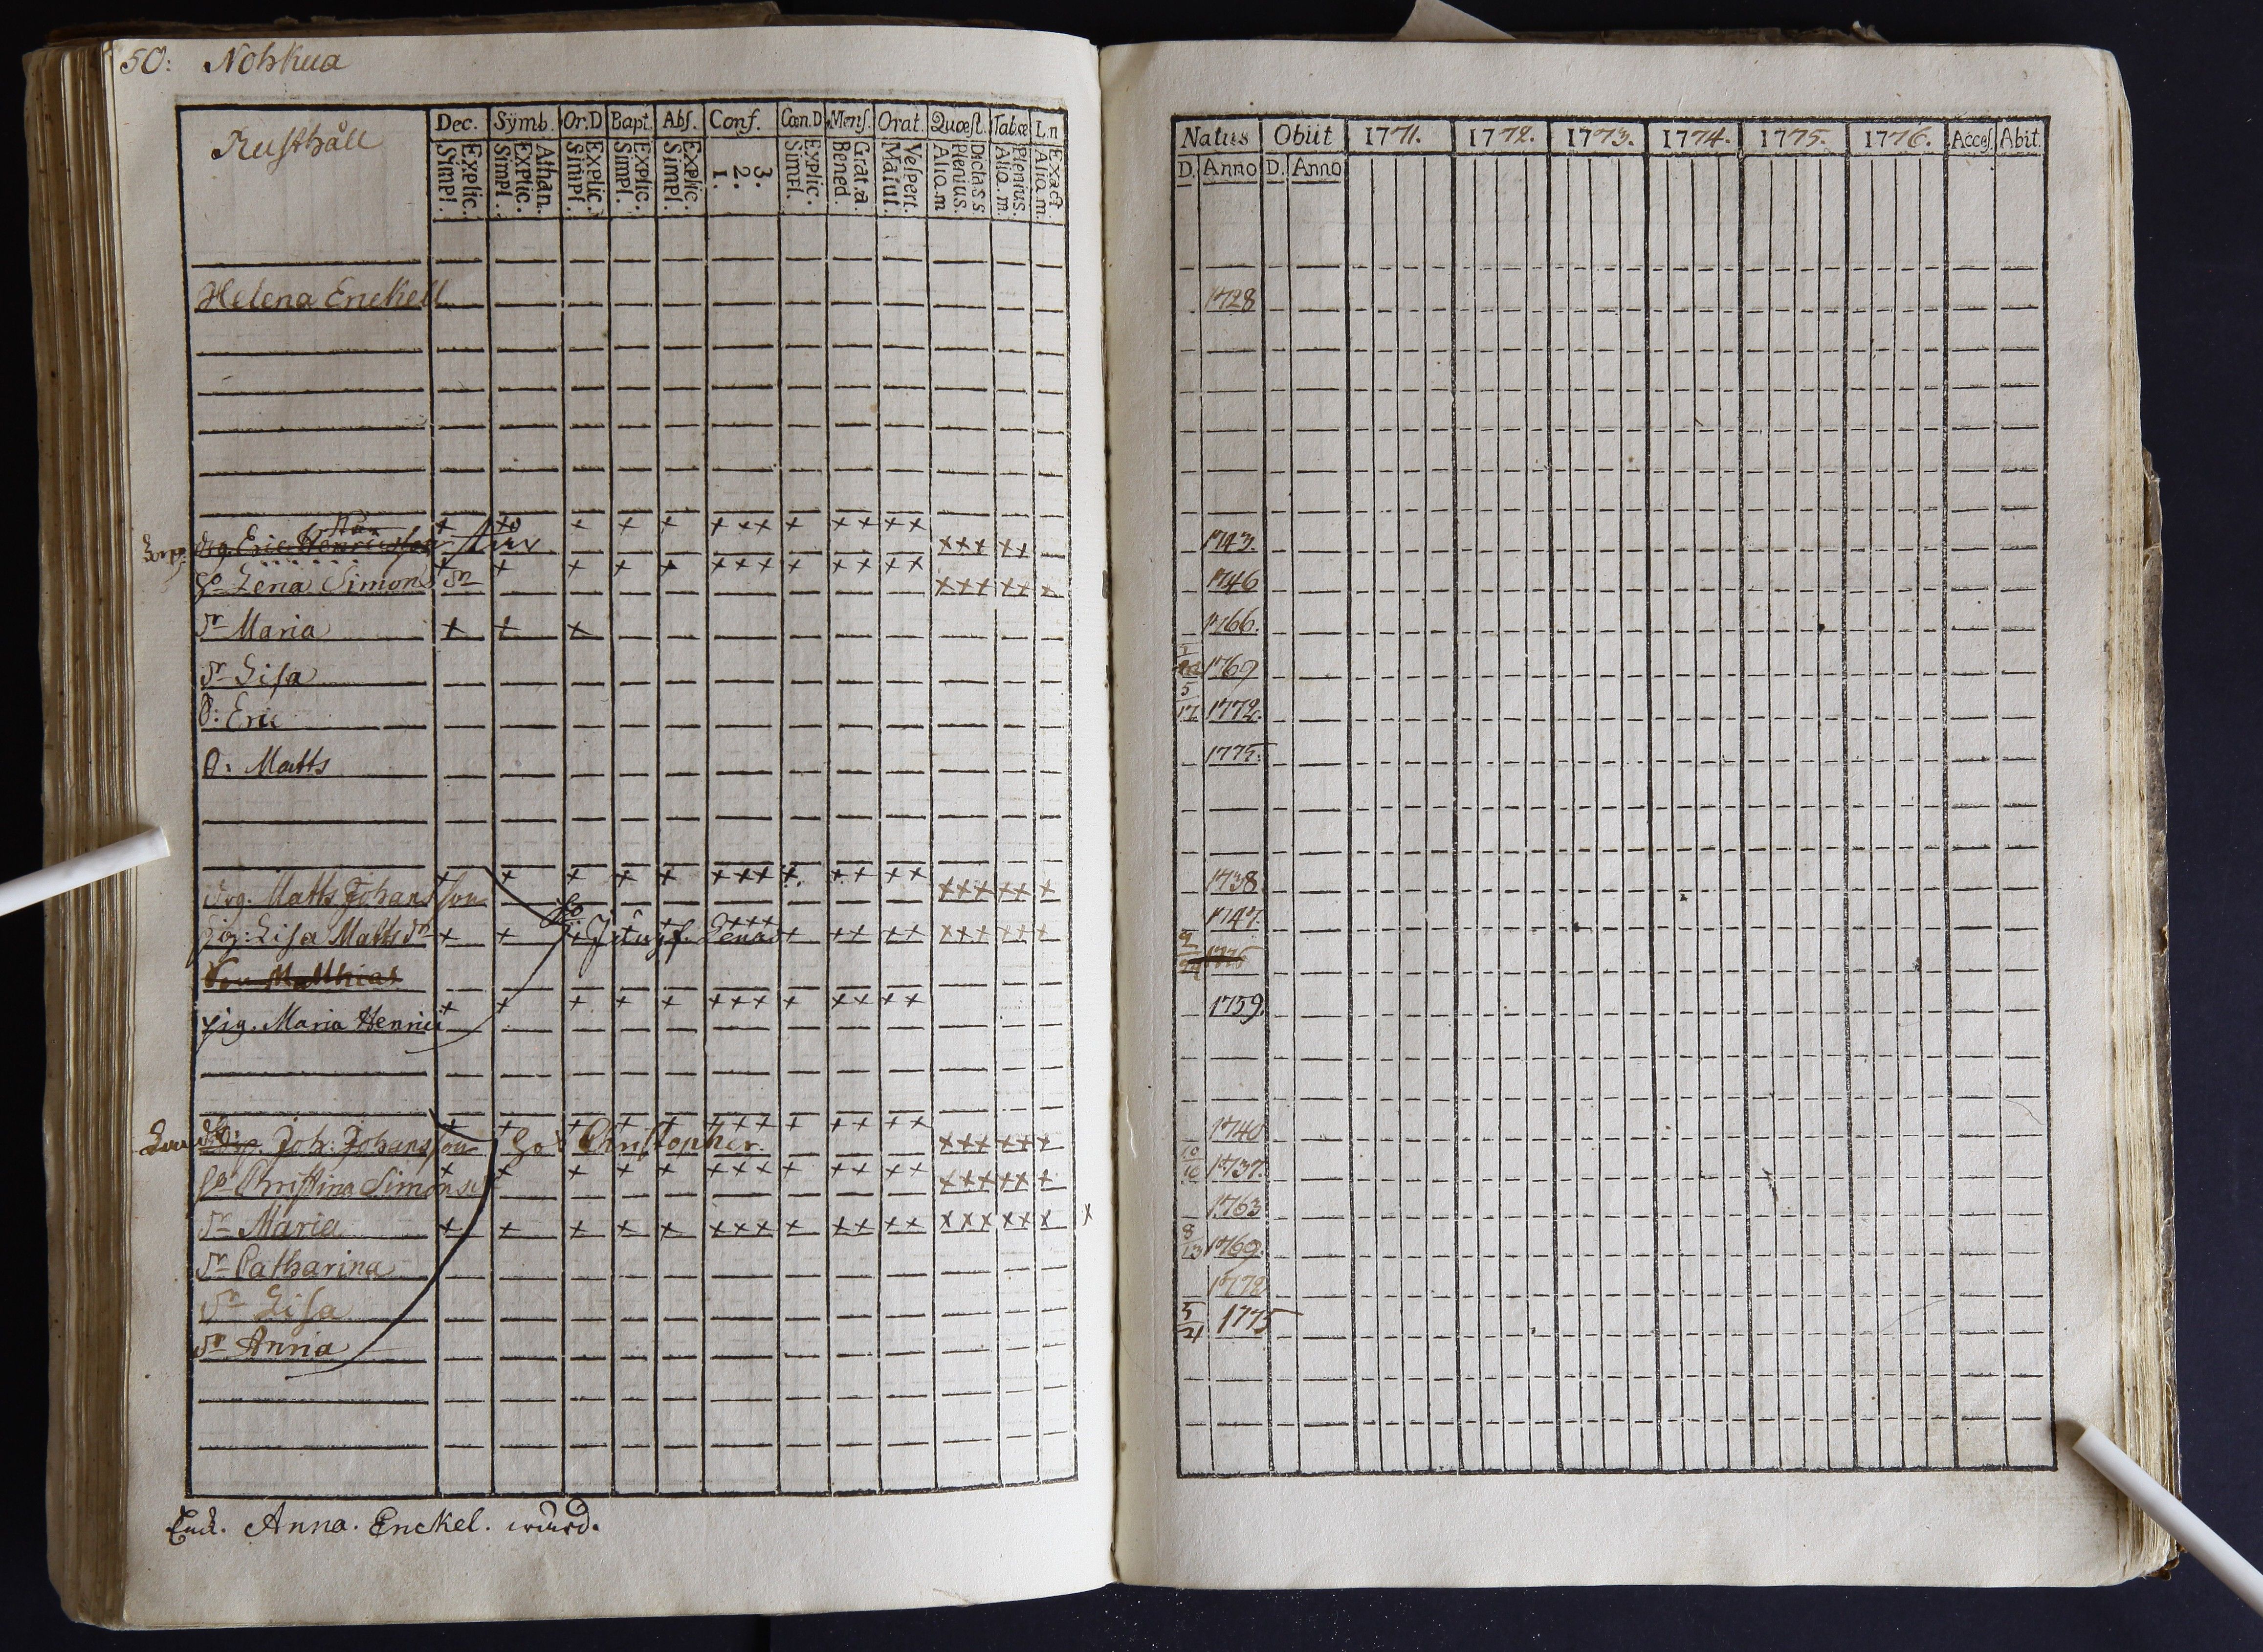 50: Nohkua
Rusthåll
Dec. Symb. Or.D Bapt. Abs. Conf. Cœn.D Mens. Orat. Quæst. Tabæ L.n
Explic. Simpl. Athan. Explic. Simpl. Explic. Simpl. Explic. Simpl. Explic. Simpl. 3. 2. 1. Explic. Simpl. Grat.a. Bened. Vespert. Matut. Dicta S.S. Plenius. Aliq.m Plenius. Aliq.m. Exact. Aliq.m.
Natus Obiit 1771. 1772. 1773. 1774. 1775. 1776. Acces. Abit.
D. Anno D. Anno
Helena Enckell 1728
Eric Henricsson 1743.
Lena Simons dr 1746
dr Maria 1766.
dr Lisa 1769
S: Eric 5/17 1772.
S: Matts 1775.
drg. Matts Johansson 1738.
pig: Lisa Matts dr 1747.
Son Matthias 1776
pig. Maria Henrici 1759.
Joh: Johansson Christopher. 1740
Christina Simons 10/16 1737.
dr Maria 1763
dr Catharina 8/13 1769.
dr Lisa 1772
dr Anna 5/21 1775
Anna. Enckel.